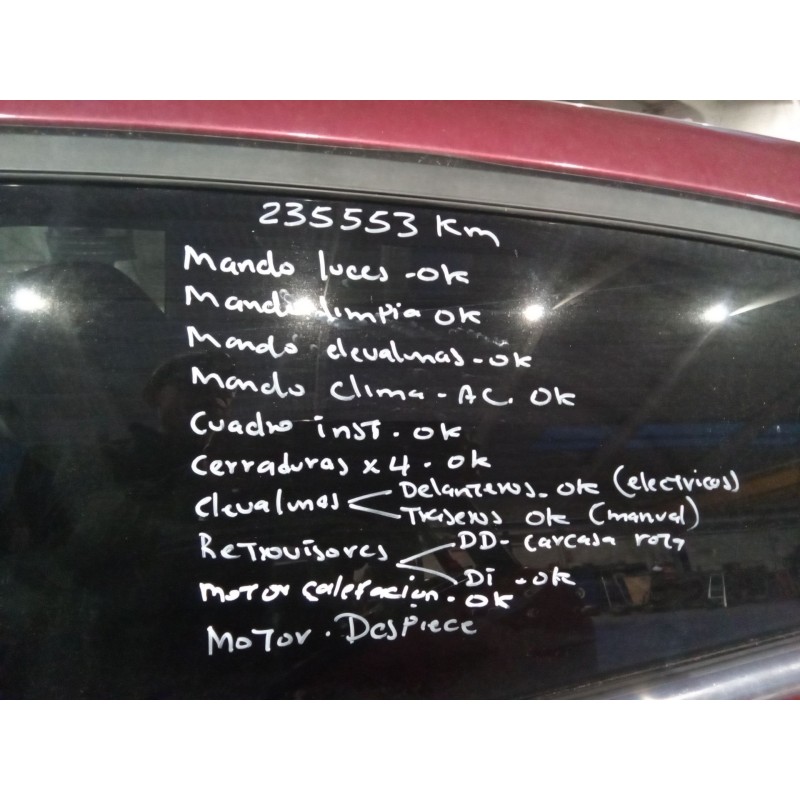 235553 Km
Mando luces - ok
Mando limpia ok
Mando elevalunas - ok
Mando clima - AC. ok
Cuadro inst. ok
Cerraduras x 4 - ok
Elevalunas Delanteros - ok (electricos)
Traseros ok (manual)
Retrovisores DD - carcasa rota
Di - ok
motor calefacion - ok
Motor - Despiece